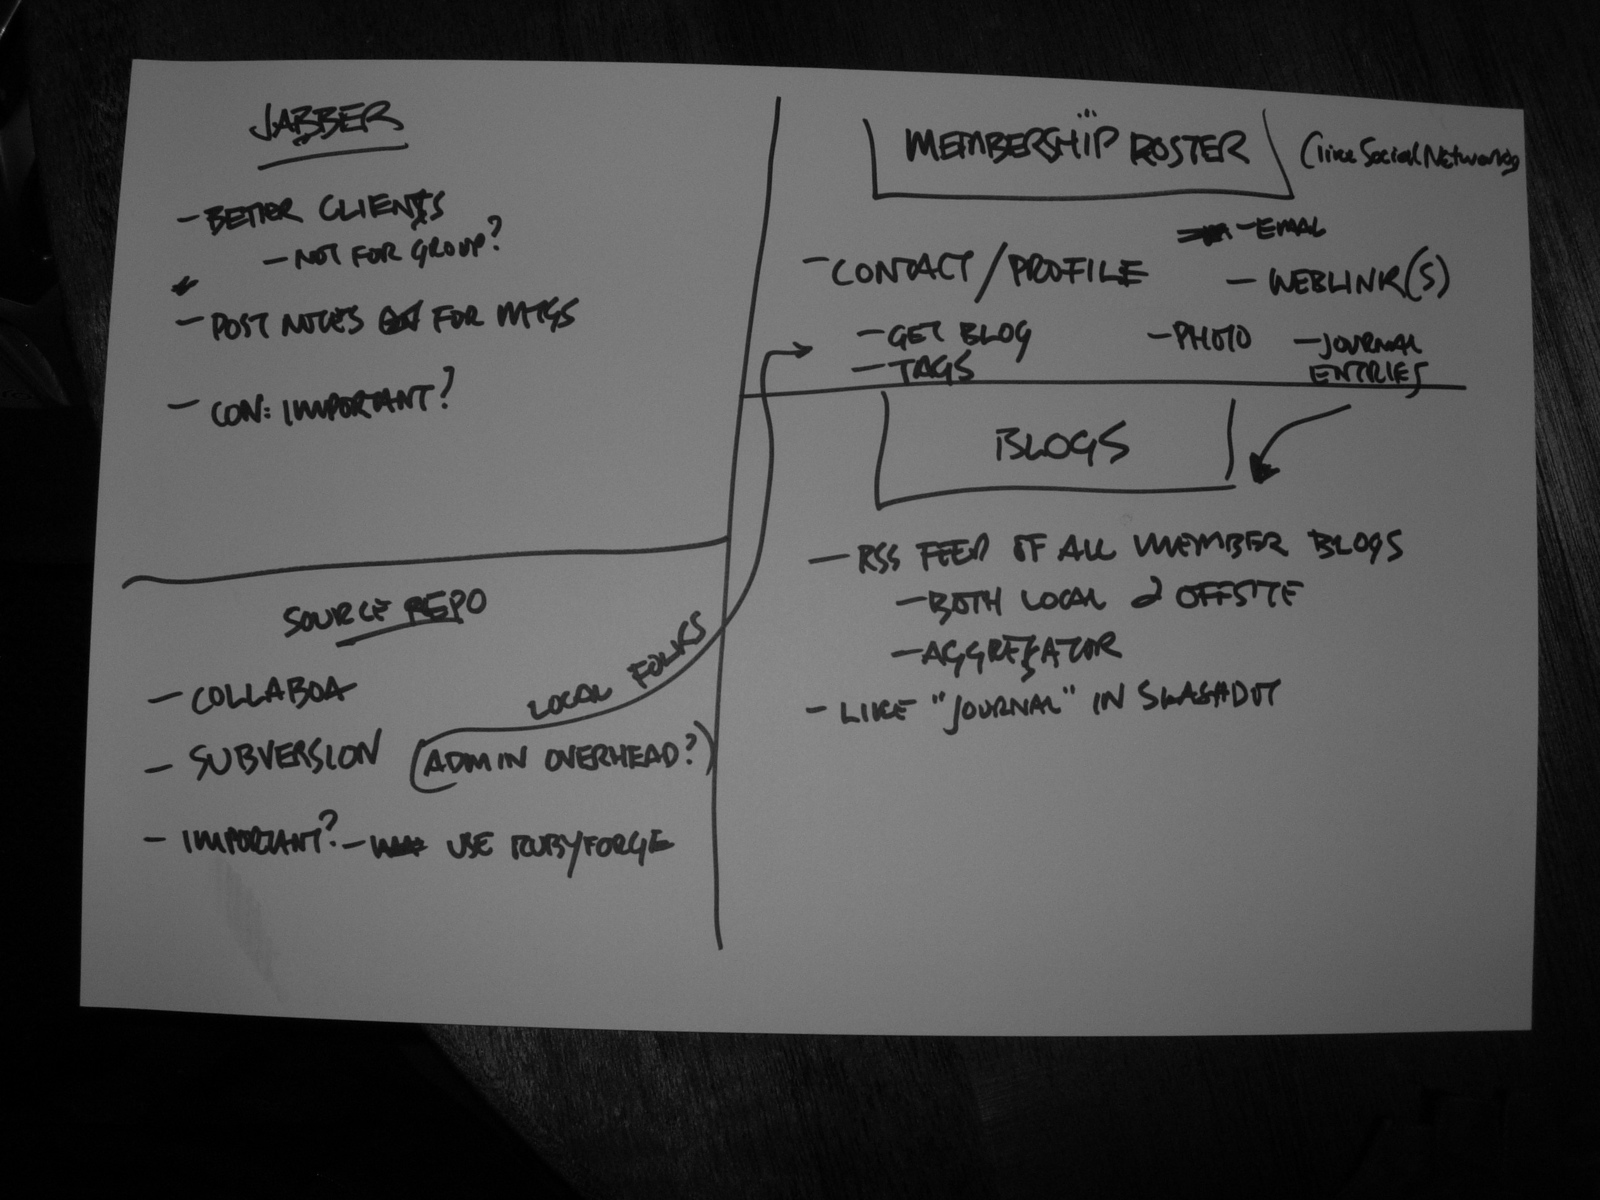 JABBER
- BETTER CLIENTS
- NOT FOR GROUP?
- POST NOTES FOR MTGS
- CON: IMPORTANT?
SOURCE REPO
- COLLABOA
- SUBVERSION (ADMIN OVERHEAD?)
- IMPORTANT? - USE RUBYFORGE
LOCAL FOLKS
MEMBERSHIP ROSTER (like Social Networks)
- EMAIL
- CONTACT/PROFILE
- WEBLINK(S)
- GET BLOG
- TAGS
- PHOTO
- JOURNAL
ENTRIES
BLOGS
- RSS FEED OF ALL MEMBER BLOGS
- BOTH LOCAL & OFFSITE
- AGGREGATOR
- LIKE "JOURNAL" IN SLASHDOT